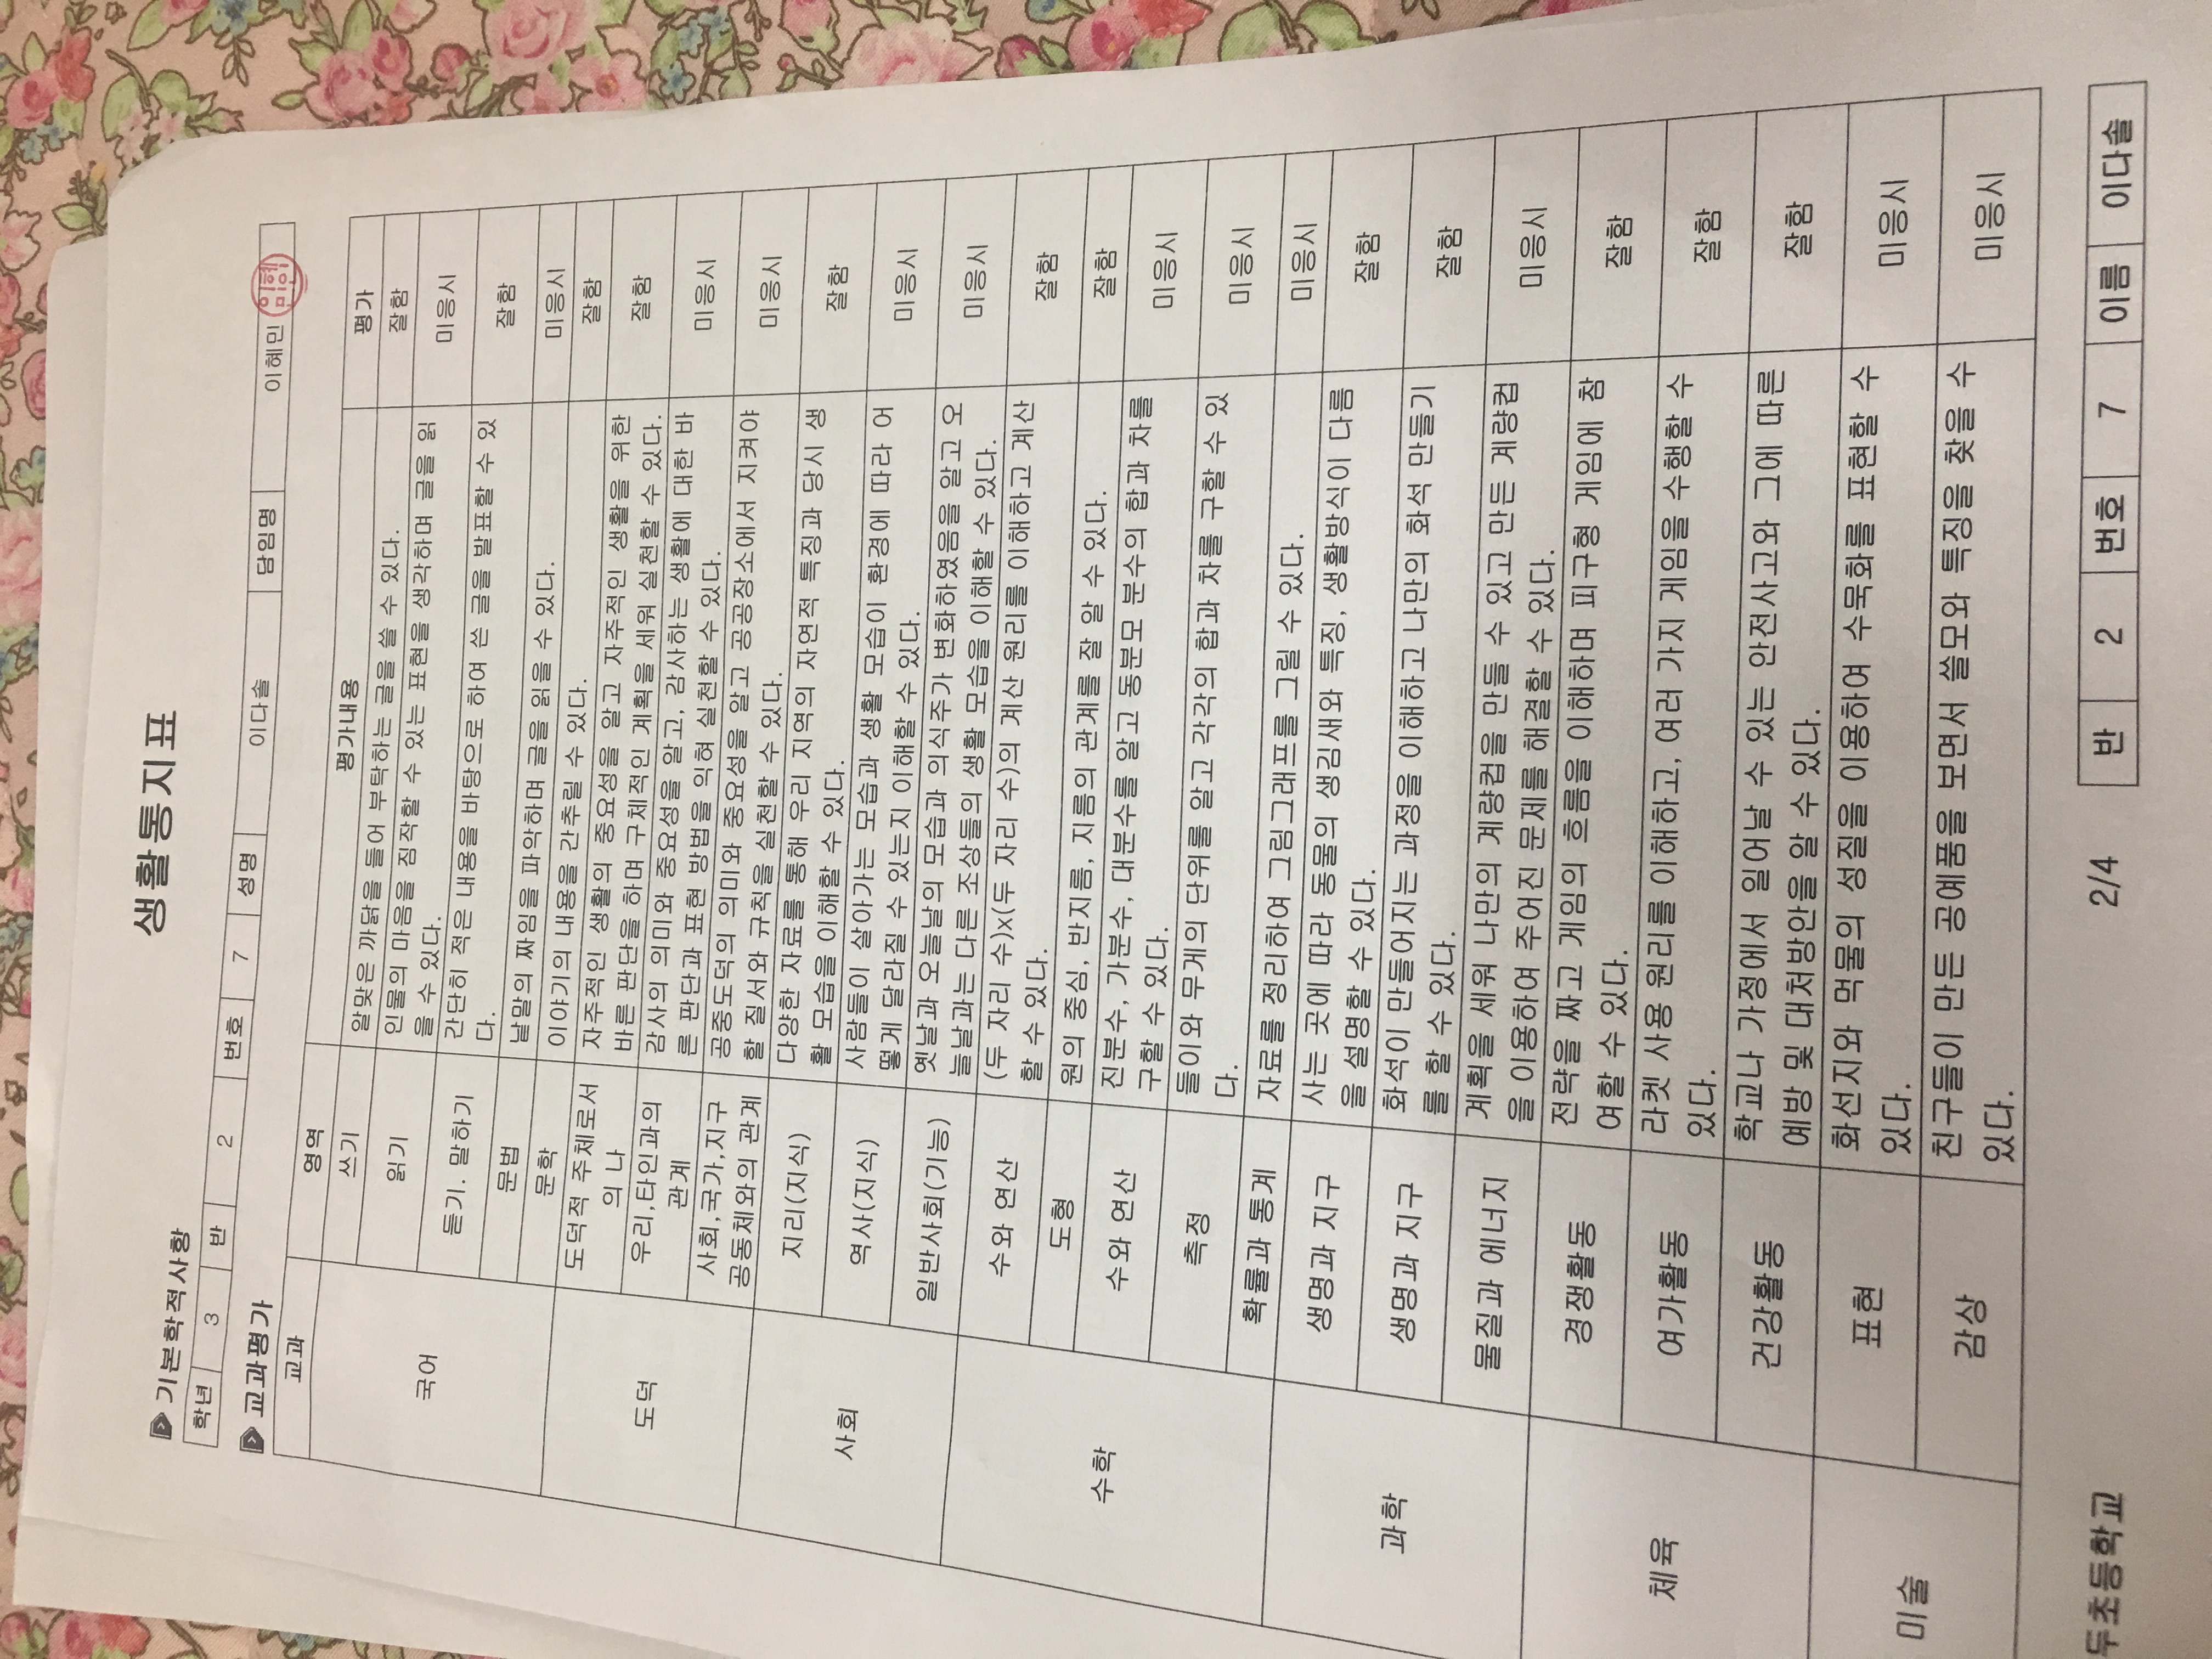 생활통지표
기본학적사항
학년 3 반 2 번호 7 성명 이다솔 담임명 이혜민
교과평가
교과 영역 평가내용 평가
국어 쓰기 알맞은 까닭을 들어 부탁하는 글을 쓸 수 있다. 잘함
읽기 인물의 마음을 짐작할 수 있는 표현을 생각하며 글을 읽 미응시
을 수 있다.
듣기. 말하기 간단히 적은 내용을 바탕으로 하여 쓴 글을 발표할 수 있 잘함
다.
문법 낱말의 짜임을 파악하며 글을 읽을 수 있다. 미응시
문학 이야기의 내용을 간추릴 수 있다. 잘함
도덕 도덕적 주체로서 자주적인 생활의 중요성을 알고 자주적인 생활을 위한 잘함
의 나 바른 판단을 하며 구체적인 계획을 세워 실천할 수 있다.
우리,타인과의 감사의 의미와 중요성을 알고, 감사하는 생활에 대한 바 미응시
관계 른 판단과 표현 방법을 익혀 실천할 수 있다.
사회,국가,지구 공중도덕의 의미와 중요성을 알고 공공장소에서 지켜야 미응시
공동체와의 관계 할 질서와 규칙을 실천할 수 있다.
사회 지리(지식) 다양한 자료를 통해 우리 지역의 자연적 특징과 당시 생 잘함
활 모습을 이해할 수 있다.
역사(지식) 사람들이 살아가는 모습과 생활 모습이 환경에 따라 어 미응시
떻게 달라질 수 있는지 이해할 수 있다.
일반사회(기능) 옛날과 오늘날의 모습과 의식주가 변화하였음을 알고 오 미응시
늘날과는 다른 조상들의 생활 모습을 이해할 수 있다.
수학 수와 연산 (두 자리 수)x(두 자리 수)의 계산 원리를 이해하고 계산 잘함
할 수 있다.
도형 원의 중심, 반지름, 지름의 관계를 잘 알 수 있다. 잘함
수와 연산 진분수, 가분수, 대분수를 알고 동분모 분수의 합과 차를 미응시
구할 수 있다.
측정 들이와 무게의 단위를 알고 각각의 합과 차를 구할 수 있 미응시
다.
확률과 통계 자료를 정리하여 그림그래프를 그릴 수 있다. 미응시
과학 생명과 지구 사는 곳에 따라 동물의 생김새와 특징, 생활방식이 다름 잘함
을 설명할 수 있다.
생명과 지구 화석이 만들어지는 과정을 이해하고 나만의 화석 만들기 잘함
를 할 수 있다.
물질과 에너지 계획을 세워 나만의 계량컵을 만들 수 있고 만든 계량컵 미응시
을 이용하여 주어진 문제를 해결할 수 있다.
체육 경쟁활동 전략을 짜고 게임의 흐름을 이해하며 피구형 게임에 참 잘함
여할 수 있다.
여가활동 라켓 사용 원리를 이해하고, 여러 가지 게임을 수행할 수 잘함
있다.
건강활동 학교나 가정에서 일어날 수 있는 안전사고와 그에 따른 잘함
예방 및 대처방안을 알 수 있다.
미술 표현 화선지와 먹물의 성질을 이용하여 수묵화를 표현할 수 미응시
있다.
감상 친구들이 만든 공예품을 보면서 쓸모와 특징을 찾을 수 미응시
있다.
두초등학교 2/4 반 2 번호 7 이름 이다솔